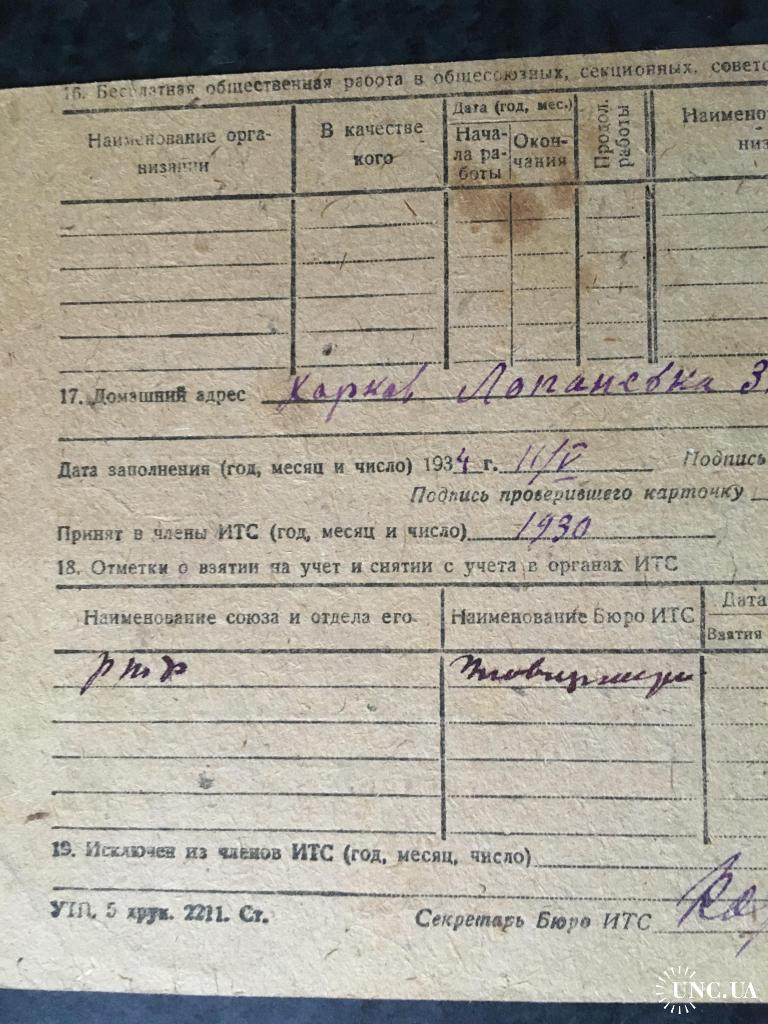 16. Бесплатная общественная работа в общесоюзных, секционных, советс
Наименование орга-
низации
В качестве
кого
Дата (год, мес.)
Нача-
ла ра-
боты
Окон-
чания
Продол.
работы
Наимено
низ
17. Домашний адрес Харков Лопаневка 3
Дата заполнения (год, месяц и число) 1934 г. 11/V Подпись
Подпись проверившего карточку
Принят в члены ИТС (год, месяц и число) 1930
18. Отметки о взятии на учет и снятии с учета в органах ИТС
Наименование союза и отдела его
Наименование Бюро ИТС
Дата
Взятия
19. Исключен из членов ИТС (год, месяц, число)
УПП. 5 друк. 2211. Ст.
Секретарь Бюро ИТС
UNC.UA